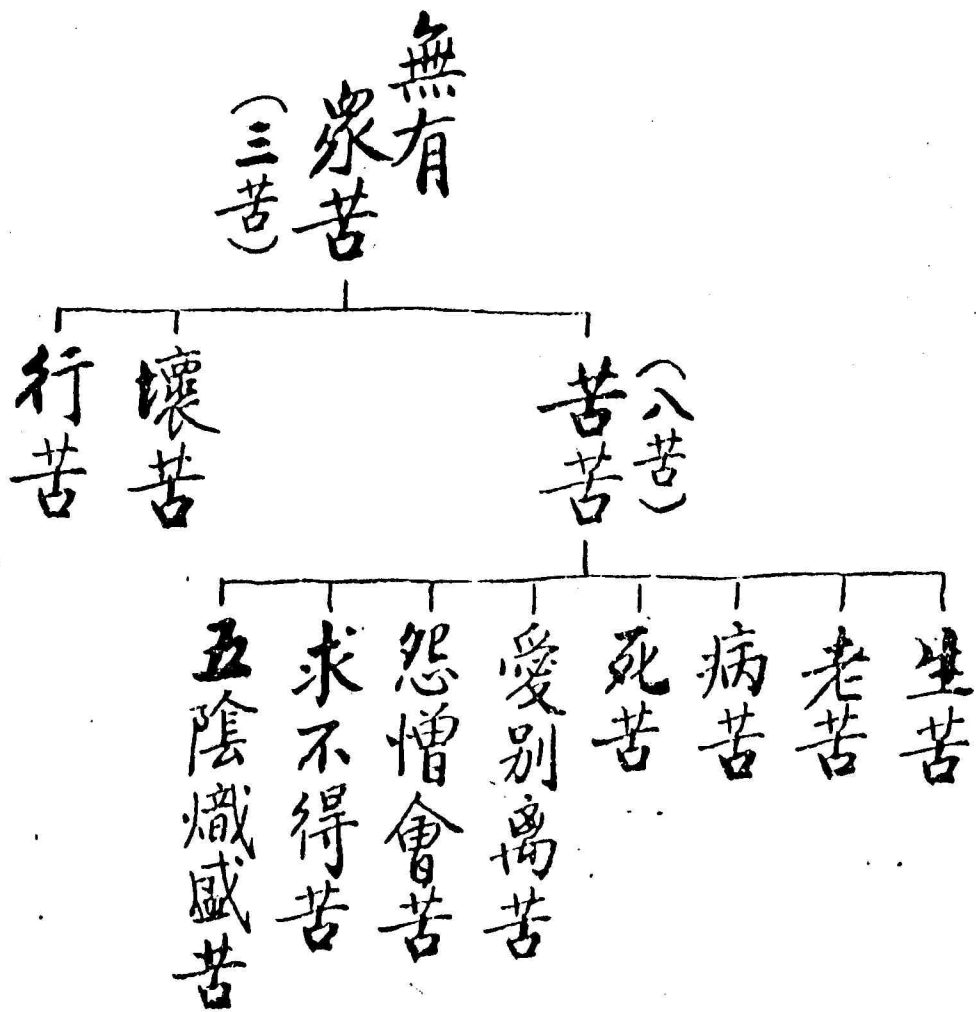 無有
眾苦
（三苦）
（八苦）
苦苦
壞苦
行苦
生苦
老苦
病苦
死苦
愛別离苦
怨憎會苦
求不得苦
五陰熾盛苦